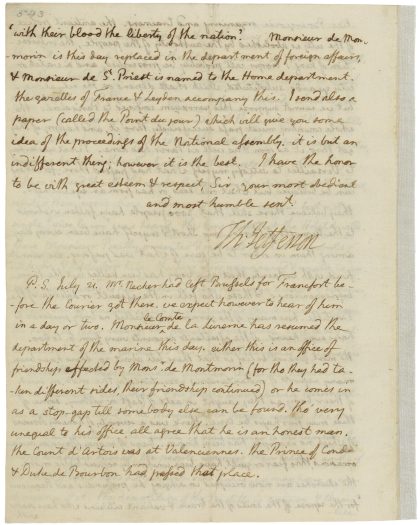 'with their blood the liberty of the nation.' Monsieur de Mont-
morin is this day replaced in the department of foreign affairs,
& Monsieur de St. Priest is named to the Home department.
the gazettes of France & Leyden accompany this. I send also a
paper (called the Point du jour) which will give you some
idea of the proceedings of the National assembly. it is but an
indifferent thing; however it is the best. I have the honor
to be with great esteem & respect, Sir, your most obedient
and most humble servt.
Th: Jefferson
P. S. July 21. Mr. Necker had left Brussels for Francfort be-
fore the Courier got there. we expect however to hear of him
in a day or two. Monsieur le Comte de la Luzerne has resumed the
department of the marine this day. either this is an office of
friendship effected by Monsr. de Montmorin (for tho they had ta-
ken different sides, their friendship continued) or he comes in
as a stop-gap till somebody else can be found. Tho' very
unequal to his office, all agree that he is an honest man.
the Count d'Artois was at Valenciennes. the Prince of Condé
& Duke de Bourbon had passed that place.